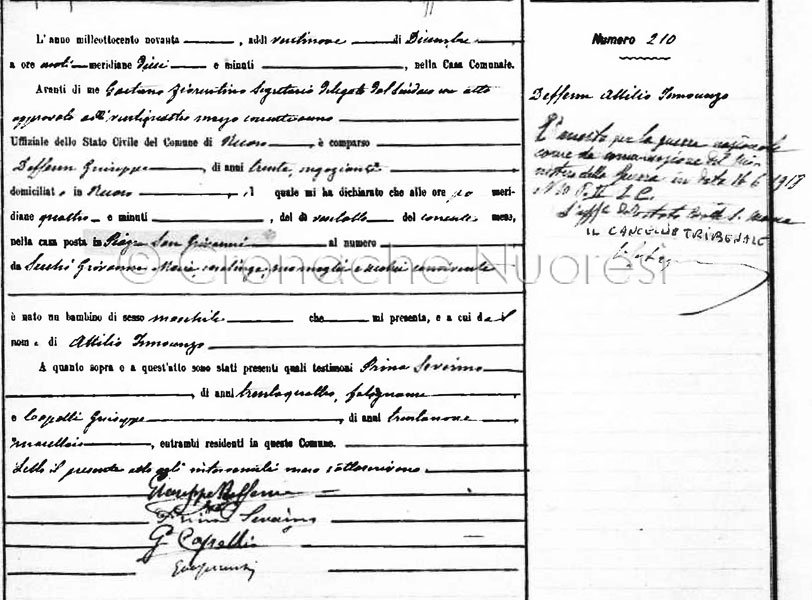 L'anno milleottocento novanta, addì ventinove di Dicembre
a ore anti meridiane dieci e minuti, nella Casa Comunale.
Avanti di me Gaetano Fiorentino Segretario Delegato dal Sindaco con atto
approvato ventiquattro marzo corrente anno
Uffiziale dello Stato Civile del Comune di Nuoro, è comparso
Deffenu Giuseppe, di anni trenta, negoziante
domiciliato in Nuoro, il quale mi ha dichiarato che alle ore po meri-
diane quattro e minuti, del dì ventotto del corrente mese,
nella casa posta in Piazza San Giovanni al numero
da Giovanna Maria, casalinga, sua moglie convivente
è nato un bambino di sesso maschile che mi presenta, e a cui dà il
nome di Attilio Innocenzo
A quanto sopra e a quest'atto sono stati presenti quali testimoni Pirina Severino
di anni trentaquattro, falegname
e Capelli Giuseppe, di anni trentanove
entrambi residenti in questo Comune.
Letto il presente atto agli intervenuti meco sottoscrivono
Giuseppe Deffenu
Pirina Severino
G Capelli
Numero 210
Deffenu Attilio Innocenzo
È morto per la guerra nazionale
come da comunicazione del Mini-
stero della Guerra in data 16 6 1918
IL CANCELL TRIBUNALE
© Cronache Nuoresi